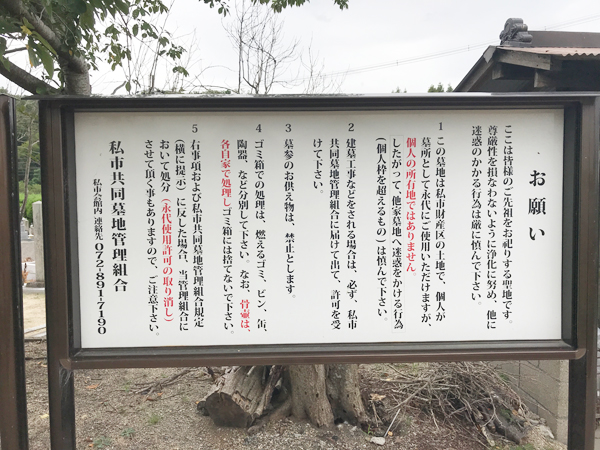 お願い
ここは皆様のご先祖をお祀りする聖地です。
尊厳性を損なわないように浄化に努め、他に
迷惑のかかる行為は厳に慎んで下さい。
1 この墓地は私市財産区の土地で、個人が
墓所として永代にご使用いただけますが、
個人の所有地ではありません。
したがって、他家墓地へ迷惑をかける行為
(個人枠を超えるもの)は慎んで下さい。
2 建墓工事などをされる場合は、必ず、私市
共同墓地管理組合に届けて出て、許可を受
けて下さい。
3 墓参のお供え物は、禁止とします。
4 ゴミ箱での処理は、燃えるゴミ、ビン、缶、
陶器、など分別して下さい。なお、骨壷は、
各自家で処理しゴミ箱には捨てないで下さい。
5 右事項および私市共同墓地管理組合規定
(横に掲示)に反した場合、当管理組合に
おいて処分(永代使用許可の取り消し)
させて頂く事もありますので、ご注意下さい。
私市共同墓地管理組合
私市会館内 連絡先 072-891-7190